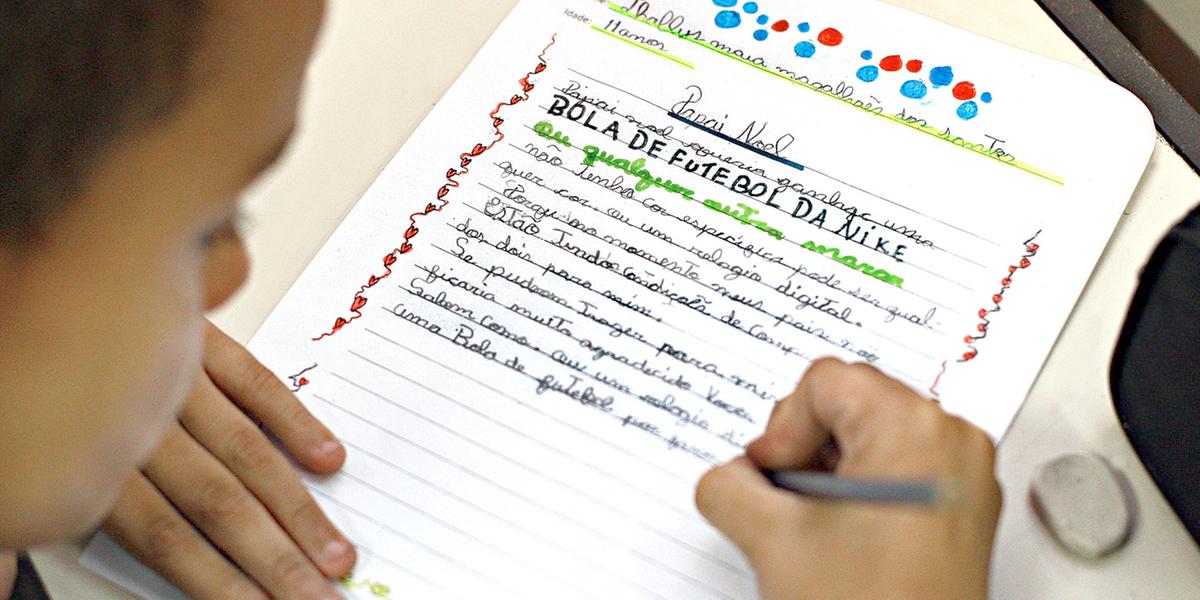 Thallys maia magalhães dos santos
Idade: 11 anos
Papai Noel
Papai noel queria ganhar uma
BOLA DE FUTEBOL DA NIKE
ou qualquer outra marca
não tenho cor específica pode ser qual-
quer cor ou um relogio digital.
Porque no momento meus pais não
estão Tendo Condições de
dos dois para mim.
Se pudera Trazer para mim
ficaria muito agradecido
ou um relogio
uma Bola de futebol por